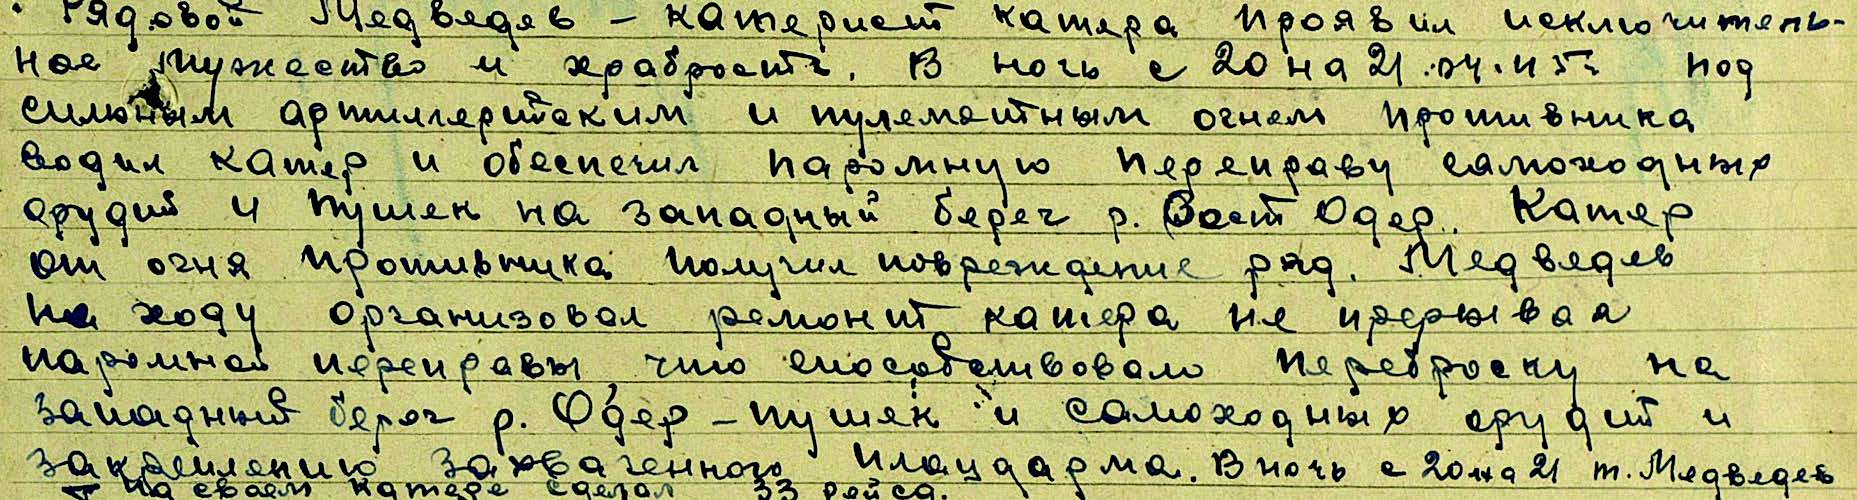 Рядовой Медведев - катерист катера проявил исключитель-
ное мужество и храбрость. В ночь с 20 на 21.04.45г. под
сильным артиллерийским и пулеметным огнем противника
водил катер и обеспечил паромную переправу самоходных
орудий и пушек на западный берег р. Вост Одер. Катер
от огня противника получил повреждение ряд. Медведев
на ходу организовал ремонт катера не прерывая
паромной переправы что способствовало переброску на
западный берег р. Одер - пушек и самоходных орудий и
закреплению захваченного плацдарма. В ночь с 20 на 21 т. Медведев
на своем катере сделал 33 рейса.